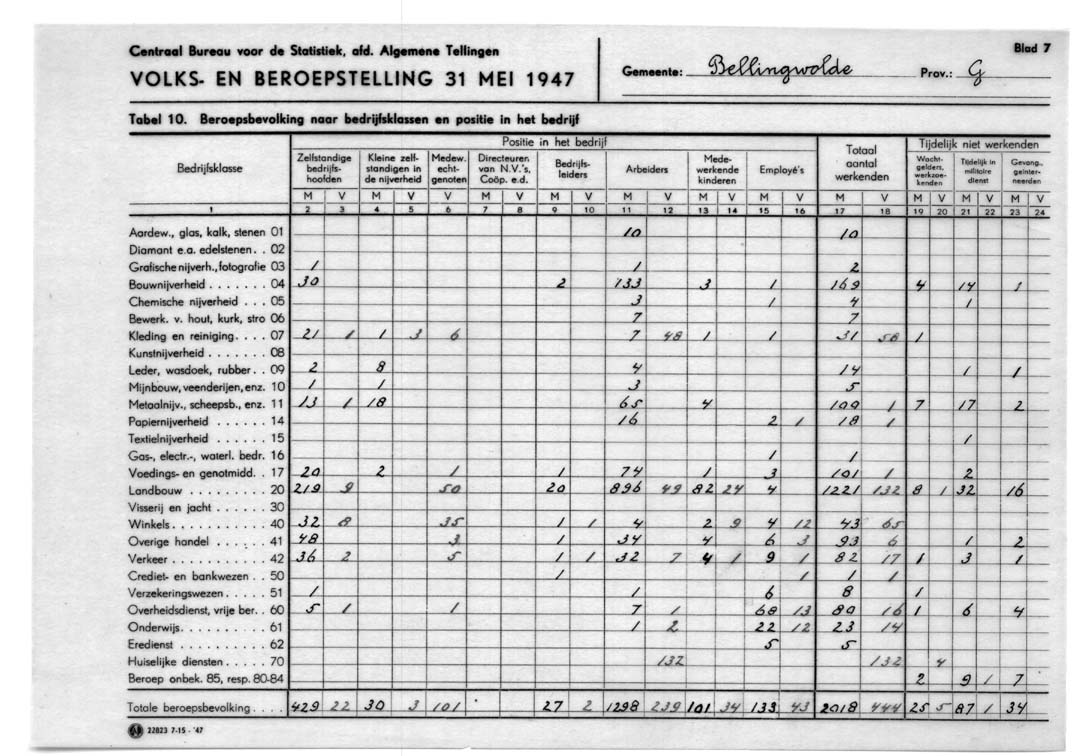 Centraal Bureau voor de Statistiek, afd. Algemene Tellingen
VOLKS- EN BEROEPSTELLING 31 MEI 1947
Gemeente: Bellingwolde Prov.: G
Blad 7
Tabel 10. Beroepsbevolking naar bedrijfsklassen en positie in het bedrijf
Bedrijfsklasse Positie in het bedrijf Totaal aantal werkenden Tijdelijk niet werkenden
Zelfstandige bedrijfshoofden Kleine zelfstandigen in de nijverheid Medew. echtgenoten Directeuren van N.V.'s, Coöp. e.d. Bedrijfsleiders Arbeiders Medewerkende kinderen Employé's Wachtgelders, werkzoekenden Tijdelijk in militaire dienst Gevang., geinterneerden
M V M V V M V M V M V M V M V M V M V M V M V
1 2 3 4 5 6 7 8 9 10 11 12 13 14 15 16 17 18 19 20 21 22 23 24
Aardew., glas, kalk, stenen 01 10 10
Diamant e.a. edelstenen . . 02
Grafische nijverh., fotografie 03 1 1 2
Bouwnijverheid . . . . . . . 04 30 2 133 3 1 169 4 14 1
Chemische nijverheid . . . 05 3 1 4 1
Bewerk. v. hout, kurk, stro 06 7 7
Kleding en reiniging. . . . 07 21 1 1 3 6 7 48 1 1 31 58 1
Kunstnijverheid . . . . . . . 08
Leder, wasdoek, rubber. . 09 2 8 4 14 1 1
Mijnbouw, veenderijen, enz. 10 1 1 3 5
Metaalnijv., scheepsb., enz. 11 13 1 18 65 4 100 1 7 17 2
Papiernijverheid . . . . . . 14 16 2 1 18 1
Textielnijverheid . . . . . . 15 1
Gas-, electr.-, waterl. bedr. 16 1 1
Voedings- en genotmidd. . 17 20 2 1 1 74 1 3 101 1 2
Landbouw . . . . . . . . . 20 219 9 50 20 896 49 82 24 4 1221 132 8 1 32 16
Visserij en jacht . . . . . . 30
Winkels . . . . . . . . . . . 40 32 8 35 1 1 4 2 9 4 12 43 65
Overige handel . . . . . . 41 48 3 1 34 4 6 3 93 6 1 2
Verkeer . . . . . . . . . . . 42 36 2 5 1 1 32 7 4 1 9 1 82 17 1 3 1
Crediet- en bankwezen . . 50 1 1 1 1
Verzekeringswezen . . . . . 51 1 1 6 8 1
Overheidsdienst, vrije ber. . 60 5 1 1 7 1 68 13 80 16 1 6 4
Onderwijs. . . . . . . . . . 61 1 2 22 12 23 14
Eredienst . . . . . . . . . . 62 5 5
Huiselijke diensten . . . . . 70 132 132 4
Beroep onbek. 85, resp. 80-84 2 9 1 7
Totale beroepsbevolking . . . . 429 22 30 3 101 27 2 1298 239 101 34 133 43 2018 444 25 5 87 1 34
22823 7-15 - '47